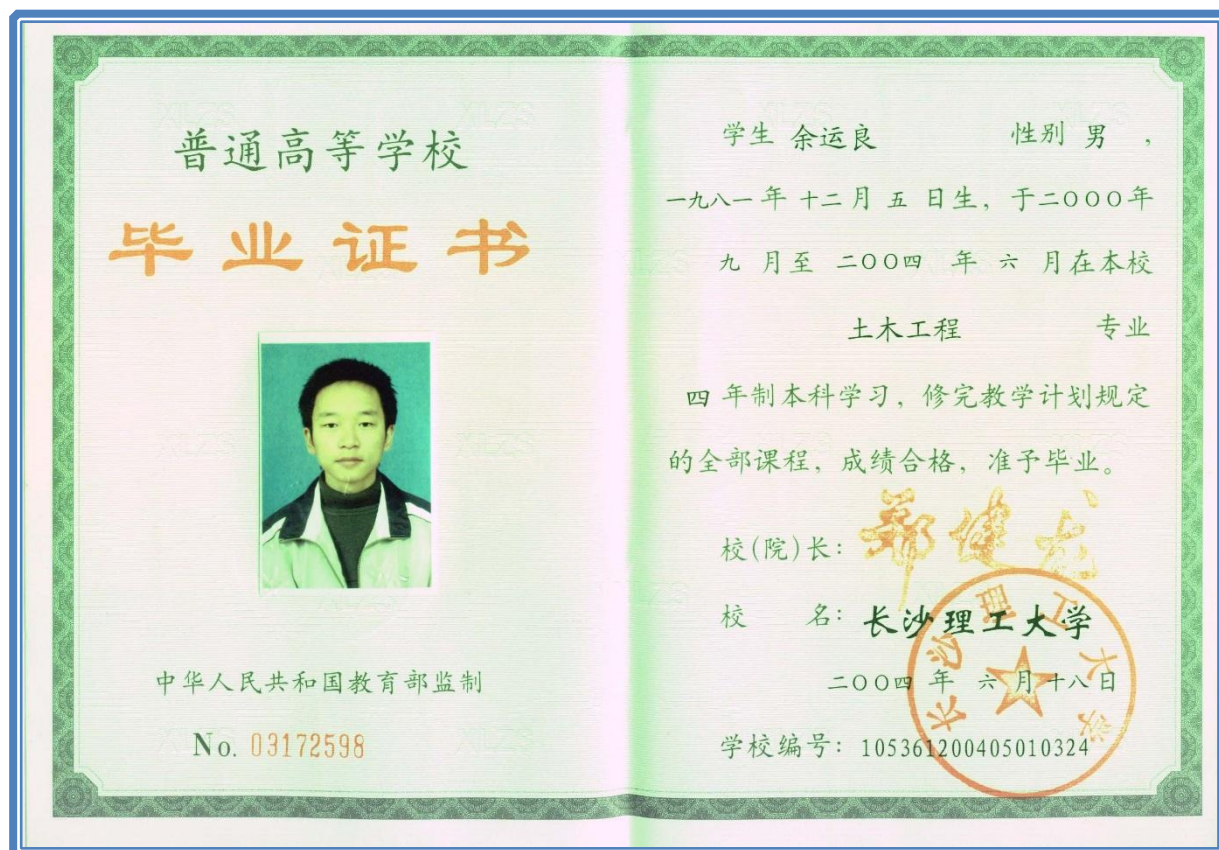 普通高等学校
毕业证书
中华人民共和国教育部监制
No. 03172598
学生 余运良 性别 男 ,
一九八一 年 十二 月 五 日生, 于二〇〇〇年
九 月至 二〇〇四 年 六 月在本校
土木工程 专业
四 年制本科学习, 修完教学计划规定
的全部课程, 成绩合格, 准予毕业。
校(院)长: 郑健龙
校 名: 长沙理工大学
二〇〇四 年 六 月 十八 日
学校编号: 105361200405010324
长沙理工大学
XLZS